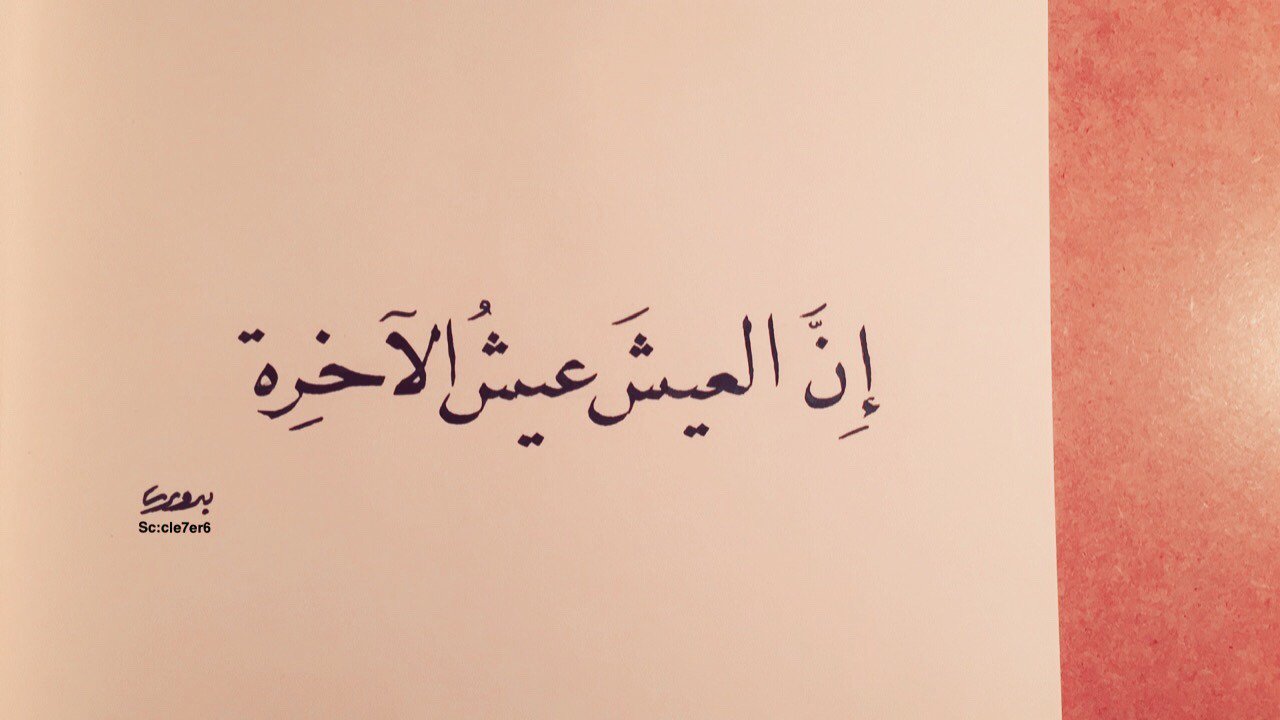 إِنَّ العيشَ عيشُ الآخرِة
Sc:cle7er6